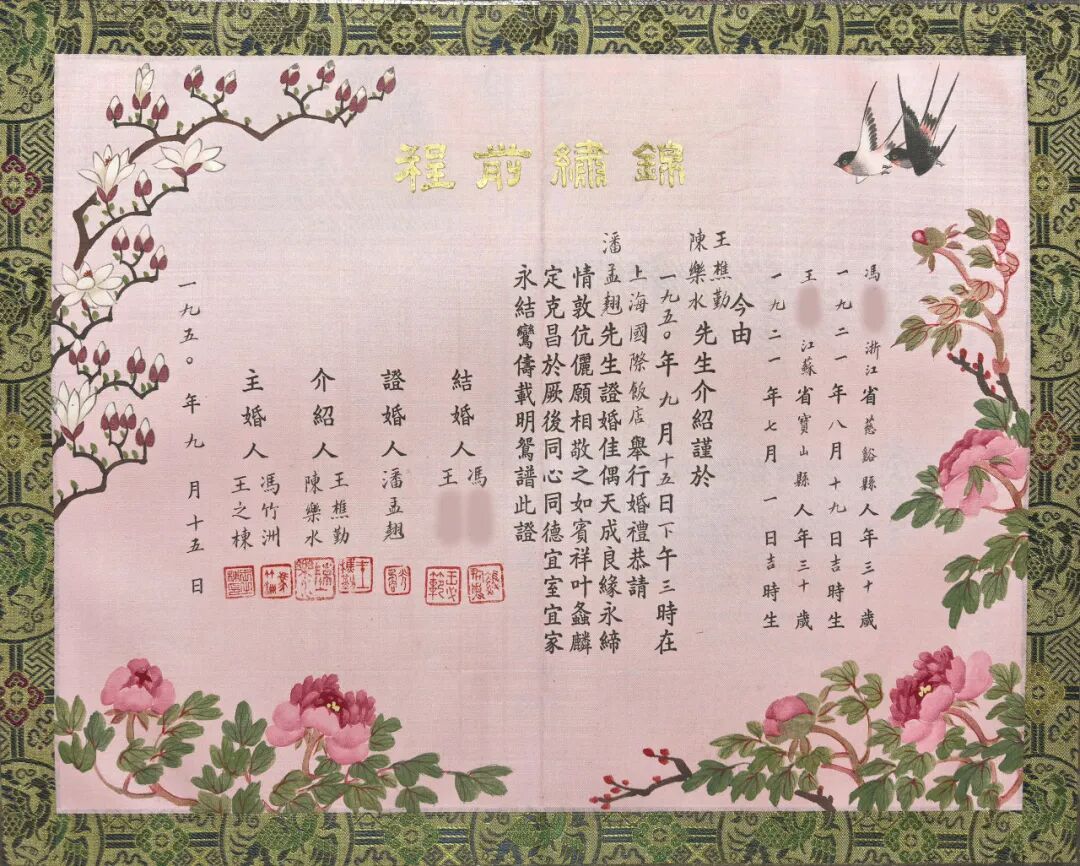 錦繡前程
馮 浙江省慈谿縣人年三十歲
一九二一年八月十九日吉時生
王 江蘇省寶山縣人年三十歲
一九二一年七月一日吉時生
今由
王樵勤
陳樂水
先生介紹謹於
一九五〇年九月十五日下午三時在
上海國際飯店舉行婚禮恭請
潘孟翹先生證婚佳偶天成良緣永締
情敦伉儷願相敬之如賓祥叶螽麟
定克昌於厥後同心同德宜室宜家
永結鸞儔載明鴛譜此證
結婚人
馮
王
證婚人
潘孟翹
介紹人
王樵勤
陳樂水
主婚人
馮竹洲
王之棟
一九五〇年九月十五日